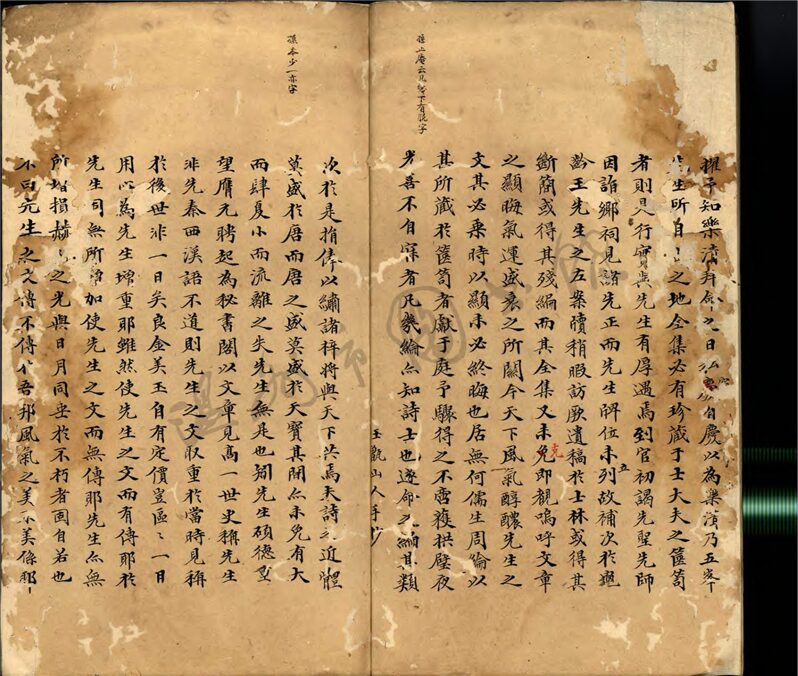 孫上庵云凡紛下有脱字
擢予知樂清拜命之日弘
生所自之地全集必有珍蔵于士大夫之篋笥
者則是行實與先生有厚遇焉到官初謁先聖先師
因詣郷祠見諸先正而先生牌位未列故補次於
齡王先生之左案牘稍暇訪厥遺稿於士林或得其
斷簡或得其殘編而其全集又未克即觀嗚呼文章
之顯晦氣運盛衰之所關今天下風氣醇醲先生之
文其必乗時以顯未必終晦也居無何儒生周倫以
其所蔵於篋笥者獻于庭予驟得之不啻獲拱璧夜
光喜不自寐者凡幾綸亦知詩士也遂命之編其類
玉甑山人手抄
孫本少一亦字
次於是捐俸以繡諸梓將與天下共焉夫詩之近體
莫盛於唐而唐之盛莫盛於天寳其間亦未免有大
而肆夏小而流離之失先生無是也矧先生碩德重
望膺元聘起為秘書閣以文章見髙一世史稱先生
非先秦西漢語不道則先生之文取重於當時見稱
於後世非一日矣良金美玉自有定價豈區區一日
用心為先生增重耶雖然使先生之文而有傳耶於
先生固無所増加使先生之文而無傳耶先生亦無
所增損赫赫之光與日月同垂於不朽者固自若也
不曰先生之文傳不傳代吾邦風氣之美不美係耶